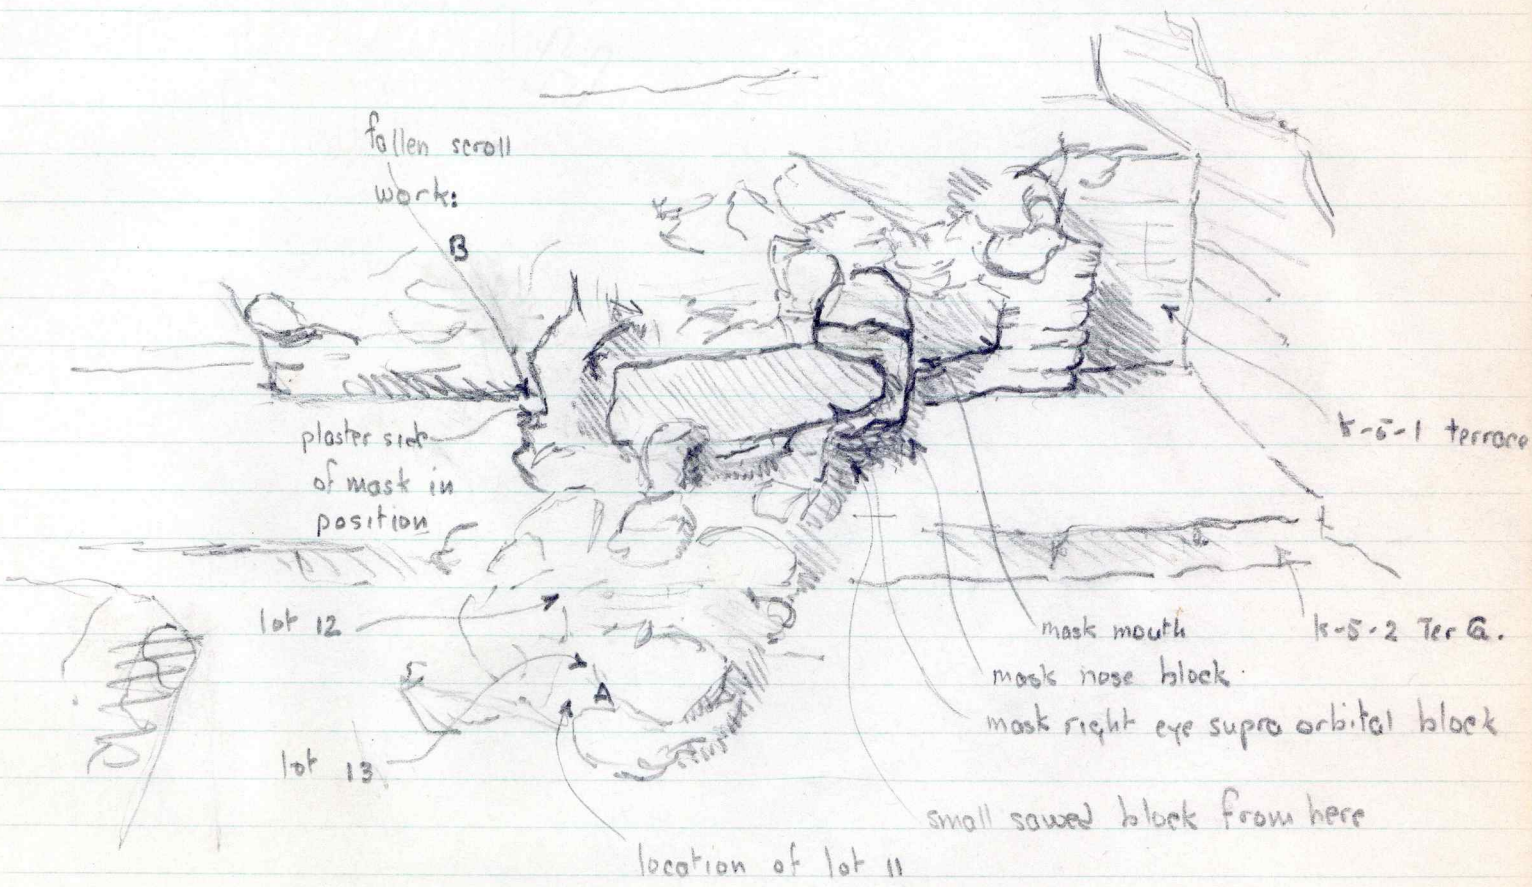 fallen scroll
work:
B
K-5-1 terrace
plaster side
of mask in
position
lot 12
mask mouth
K-5-2 Ter G.
mask nose block
A
mask right eye supra orbital block
lot 13
small sawed block from here
location of lot 11